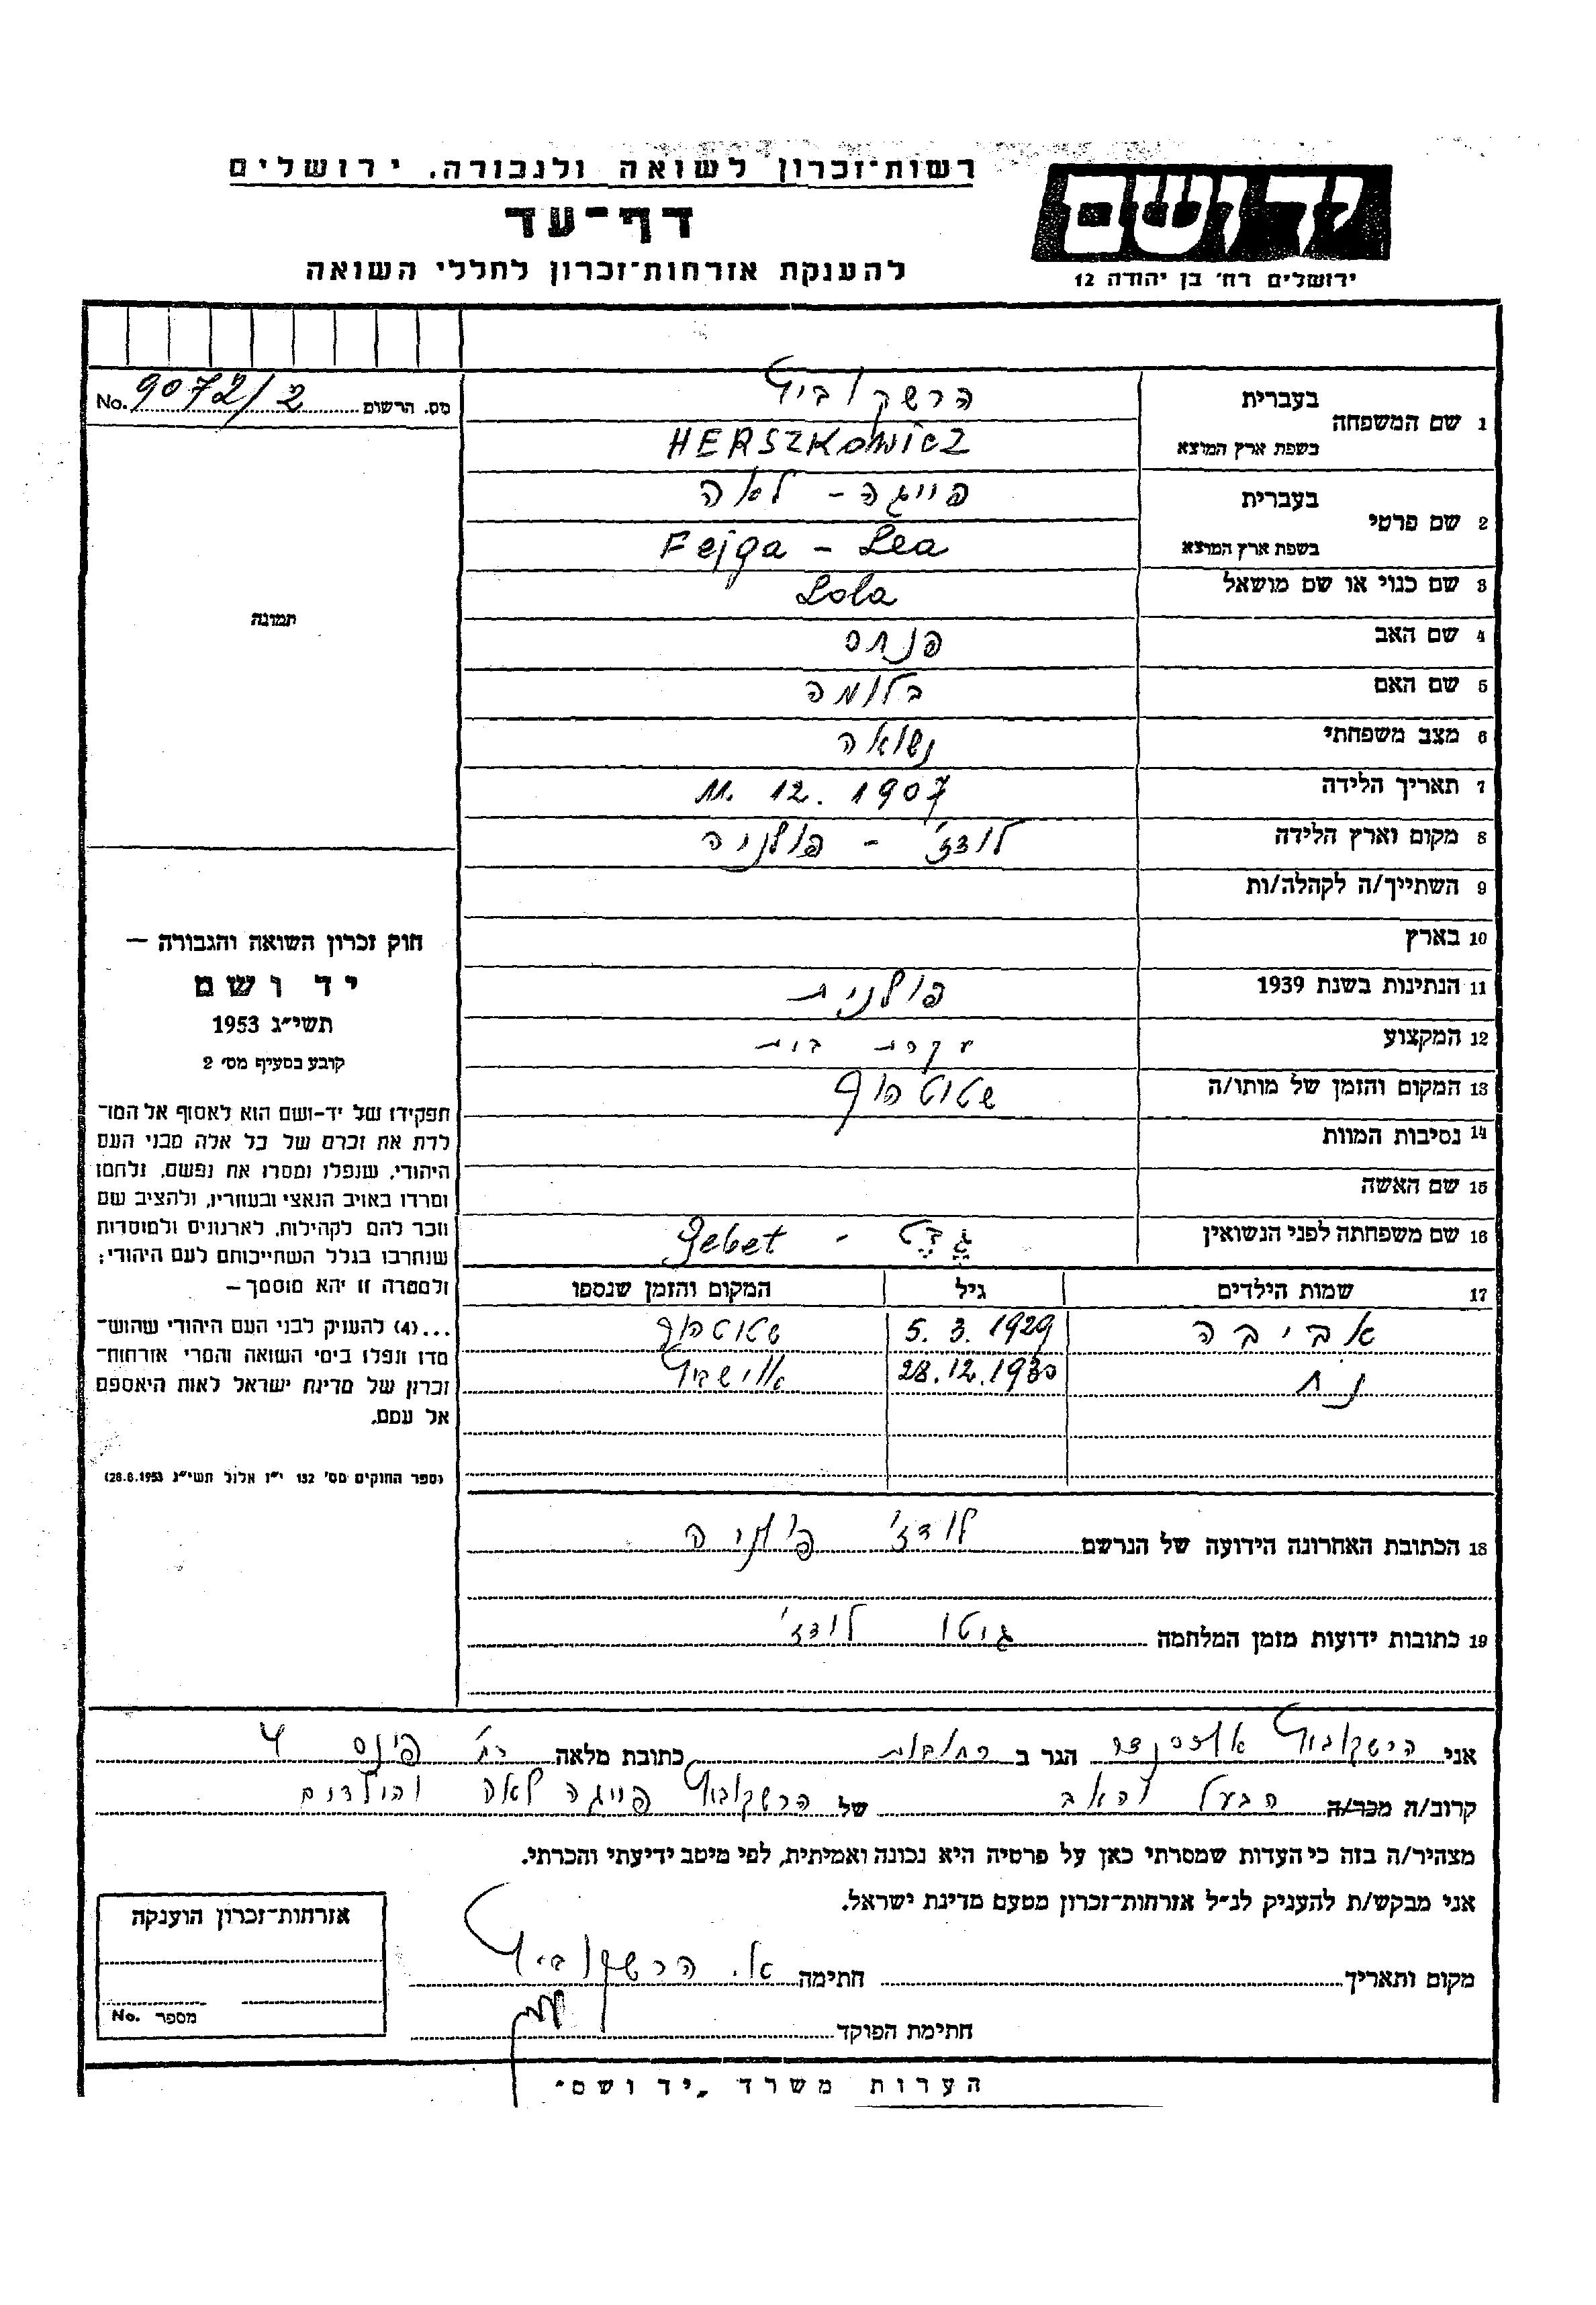 רשות־זכרון לשואה ולגבורה, ירושלים
דף־עד
להענקת אזרחות־זכרון לחללי השואה
יד ושם
ירושלים רח' בן יהודה 12
מס. הרשום 9072/2 No.
1 שם המשפחה בעברית הרשקוביץ
בשפת ארץ המוצא HERSZKOWICZ
2 שם פרטי בעברית פייגה - לאה
בשפת ארץ המוצא Fejga - Lea
3 שם כנוי או שם מושאל Lola
4 שם האב פנחס
5 שם האם בלומה
6 מצב משפחתי נשואה
7 תאריך הלידה 11. 12. 1907
8 מקום וארץ הלידה לודז' - פולניה
9 השתייך/ה לקהלה/ות
10 בארץ
11 הנתינות בשנת 1939 פולנית
12 המקצוע עקרת בית
13 המקום והזמן של מותו/ה שטוטהוף
14 נסיבות המוות
15 שם האשה
16 שם משפחתה לפני הנשואין גֶבֶּט - Gebet
17 שמות הילדים גיל המקום והזמן שנספו
אביבה 5. 3. 1929 שטוטהוף
נח 28.12.1930 אוישביץ
18 הכתובת האחרונה הידועה של הנרשם לודז' פולניה
19 כתובות ידועות מזמן המלחמה גיטו לודז'
תמונה
חוק זכרון השואה והגבורה —
יד ושם
תשי״ג 1953
קובע בסעיף מס׳ 2
תפקידו של יד-ושם הוא לאסוף אל המו־
לדת את זכרם של כל אלה מבני העם
היהודי, שנפלו ומסרו את נפשם, נלחמו
ומרדו באויב הנאצי ובעוזריו, ולהציב שם
וזכר להם לקהילות, לארגונים ולמוסדות
שנחרבו בגלל השתייכותם לעם היהודי;
ולמטרה זו יהא מוסמך —
...(4) להעניק לבני העם היהודי שהוש־
מדו ונפלו בימי השואה והמרי אזרחות־
זכרון של מדינת ישראל לאות היאספם
אל עמם.
(ספר החוקים מס׳ 132 י״ז אלול תשי״ג 28.8.1953)
אני הרשקוביץ אלכסנדר הגר ב רחובות כתובת מלאה רח' פינס 4
קרוב/ה מכר/ה הבעל והאב של הרשקוביץ פייגה לאה והילדים
מצהיר/ה בזה כי העדות שמסרתי כאן על פרטיה היא נכונה ואמיתית, לפי מיטב ידיעתי והכרתי.
אני מבקש/ת להעניק לנ״ל אזרחות־זכרון מטעם מדינת ישראל.
מקום ותאריך חתימה א. הרשקוביץ
חתימת הפוקד
אזרחות־זכרון הוענקה
מספר No.
הערות משרד „יד ושם״